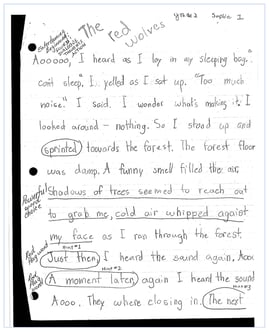 Sophie I
The red
wolves
Aooooo," I heard as I lay in my sleeping bag. "I
cant sleep." I yelled as I sat up. "Too much
noise." I said. I wonder what's making it. I
looked around - nothing. So I stood up and
sprinted towards the forest. The forest floor
was damp. A funny smell filled the air.
Powerful word choice
Shadows of trees seemed to reach out
to grab me, cold air whipped agaist
my face as I ran through the forest.
Red flag word
Hint #1
Just then I heard the sound again. Aooo
Red flag
Hint #2
A moment later again I heard the sound
Aooo. They where closing in. The next